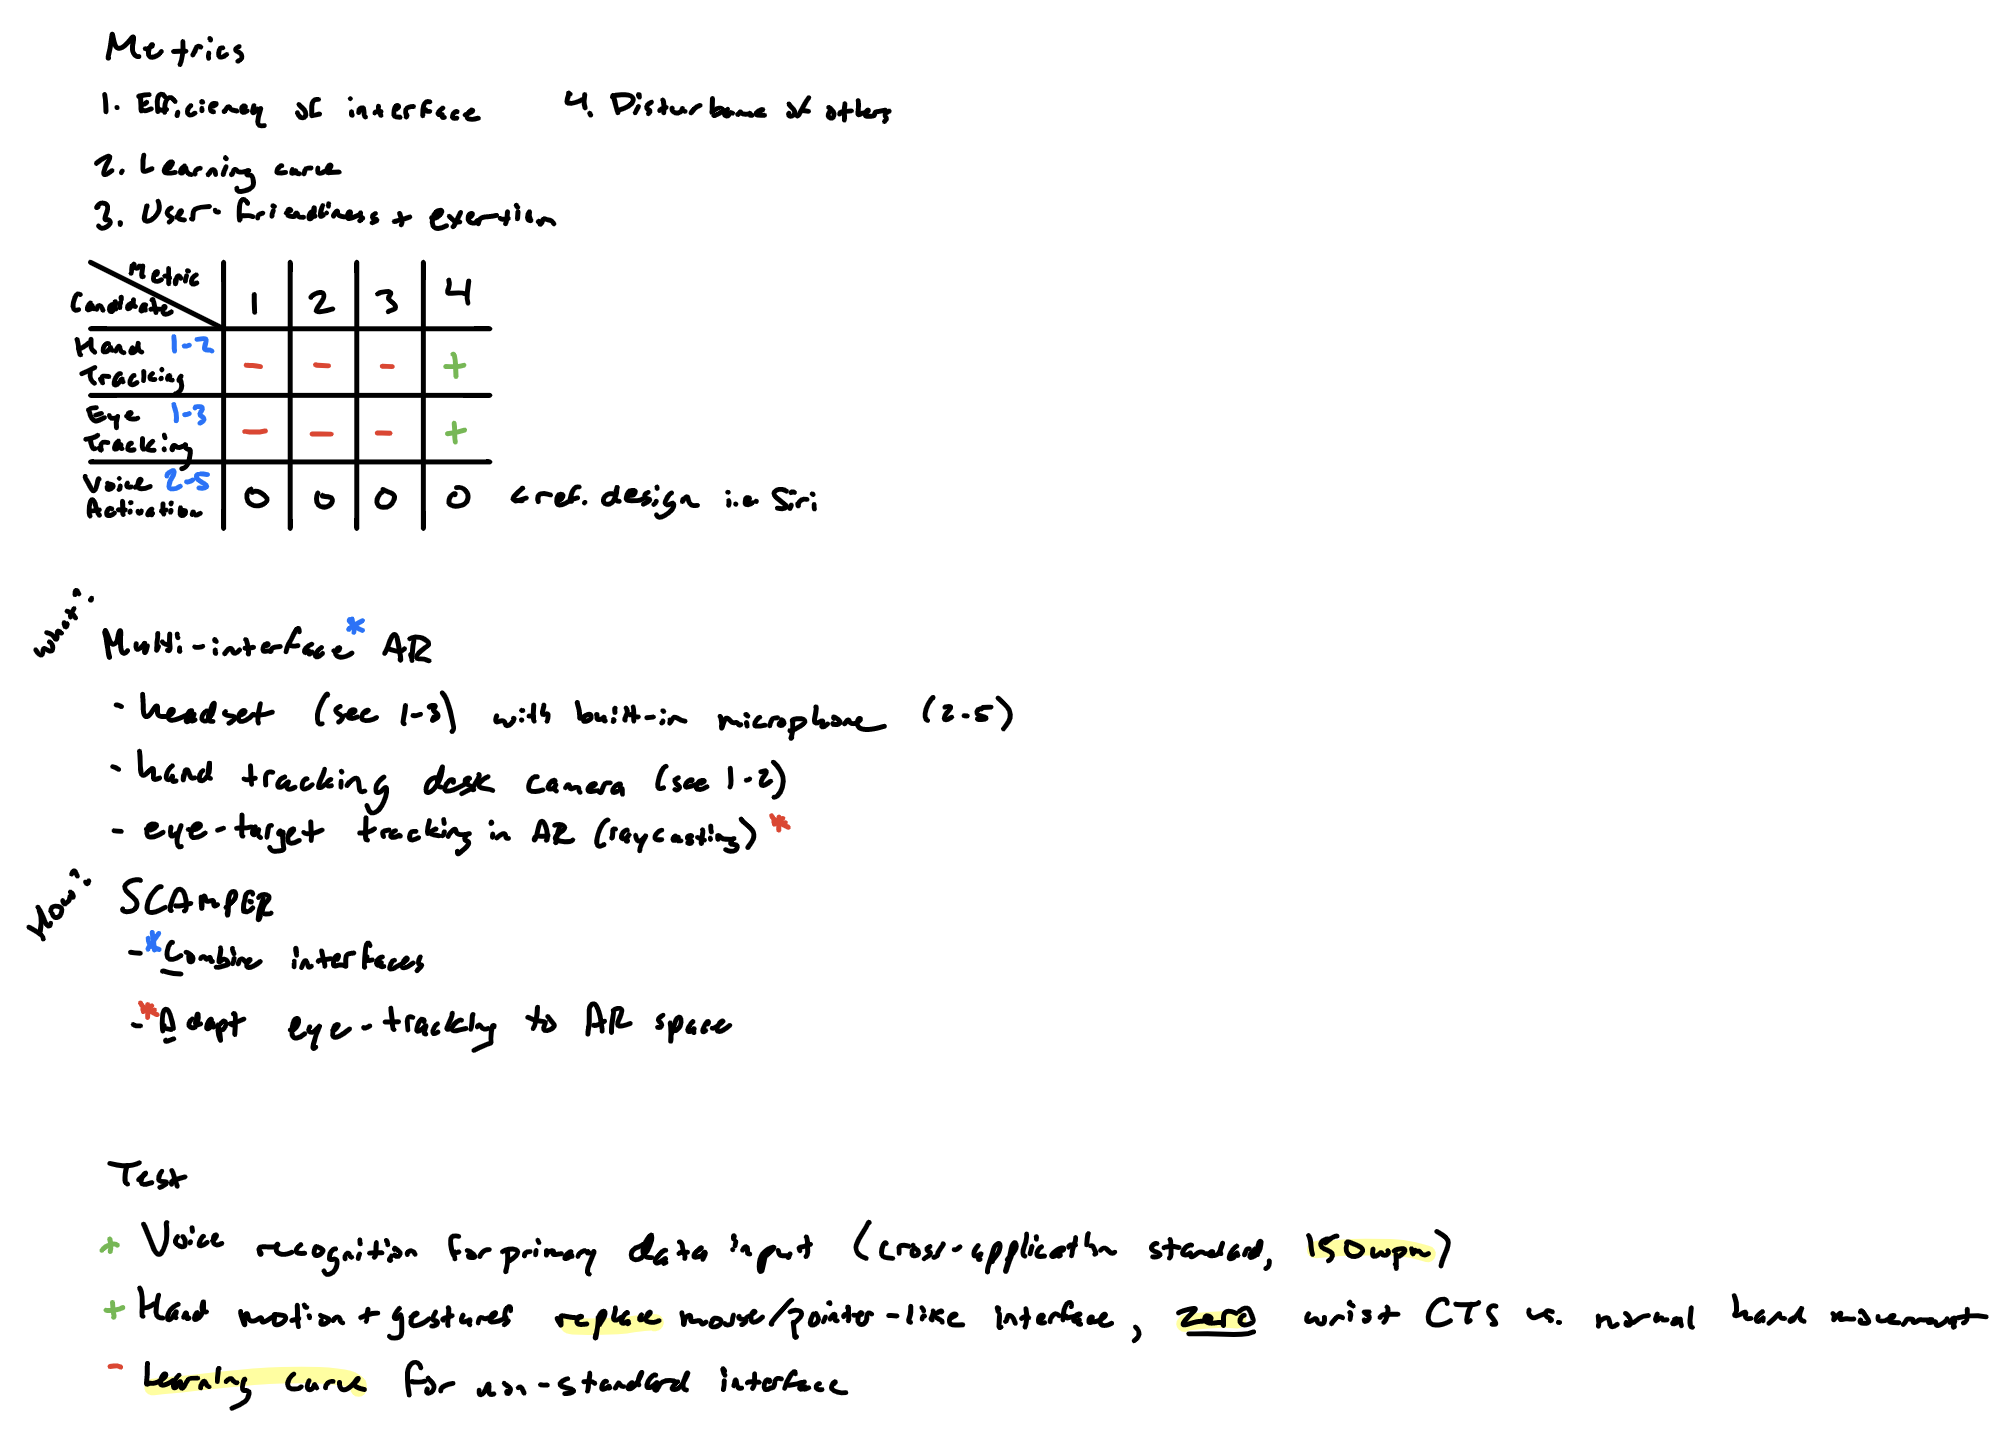 Metrics
1. Efficiency of interface
4. Disturbance of others
2. Learning curve
3. User-friendliness + exertion
Metric
Candidate 1 2 3 4
Hand 1-2
Tracking - - - +
Eye 1-3
Tracking - - - +
Voice 2-5
Activation 0 0 0 0 < ref. design i.e Siri
What?
Multi-interface* AR
- headset (see 1-3) with built-in microphone (2-5)
- hand tracking desk camera (see 1-2)
- eye-target tracking in AR (raycasting) *
How?
SCAMPER
- *Combine interfaces
- *Adapt eye-tracking to AR space
Test
+ Voice recognition for primary data input (cross-application standard, 150wpm)
+ Hand motion + gestures replace mouse/pointer-like interface, zero wrist CTS vs. normal hand movement
- Learning curve for non-standard interface